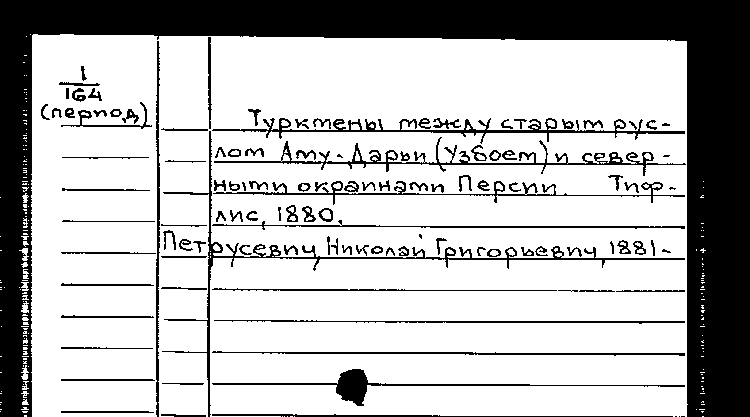 1
164
(период)
Туркмены между старым рус-
лом Аму-Дарьи (Узбоем) и север-
ными окраинами Персии. Тиф-
лис, 1880.
Петрусевич, Николай Григорьевич, 1881-